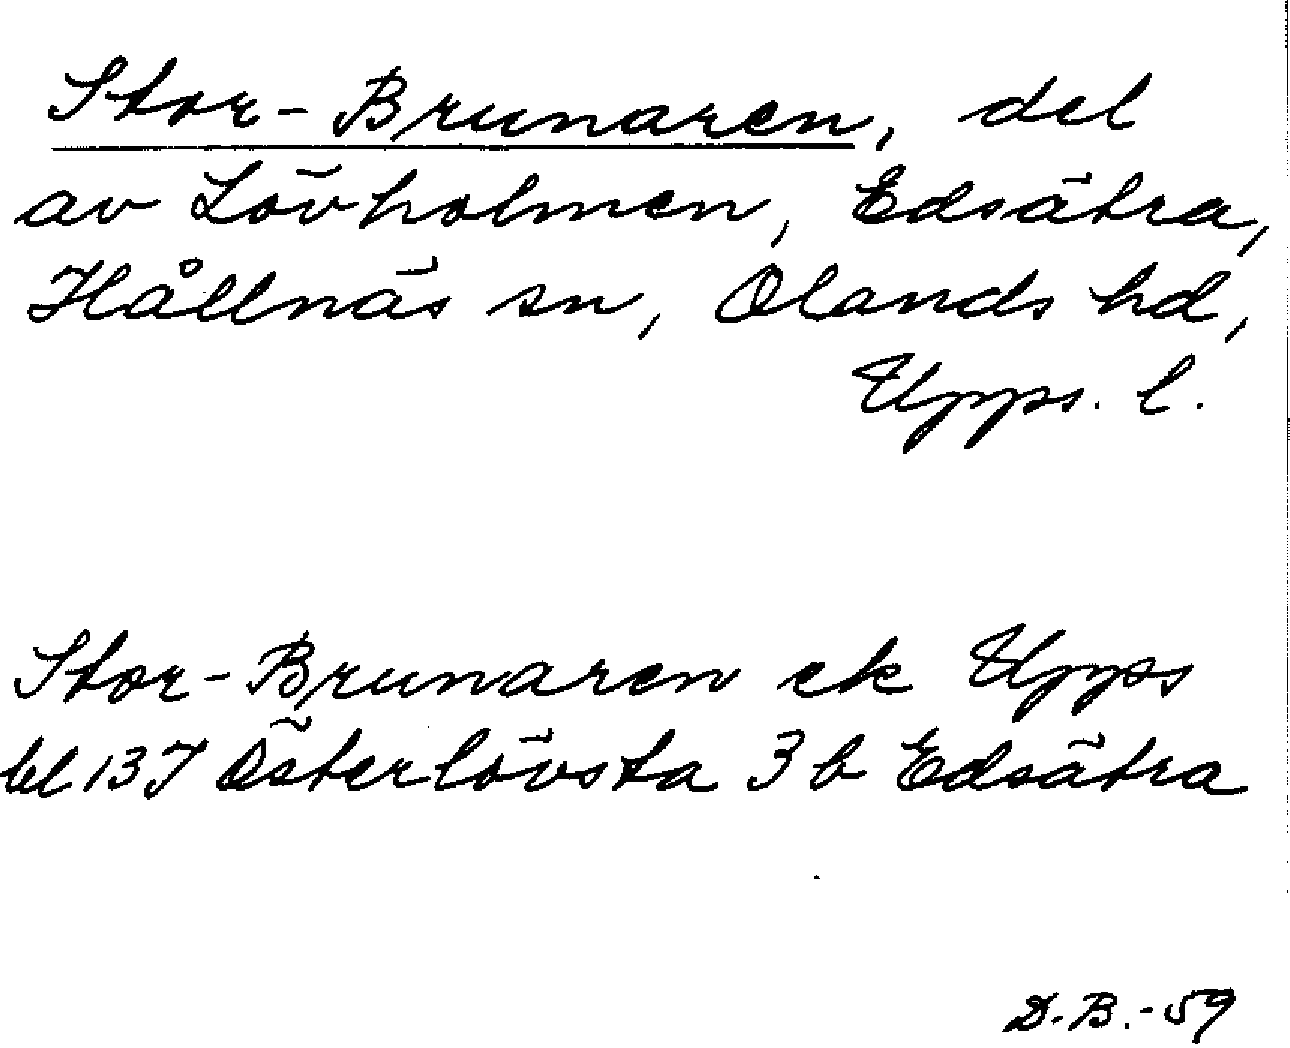 Stor-Brunaren, del
av Lövholmen, Edsätra,
Hållnäs sn, Olands hd,
Upps. l.
Stor-Brunaren ek Upps
bl 13J Österlövsta 3 b Edsätra
D.B.-59